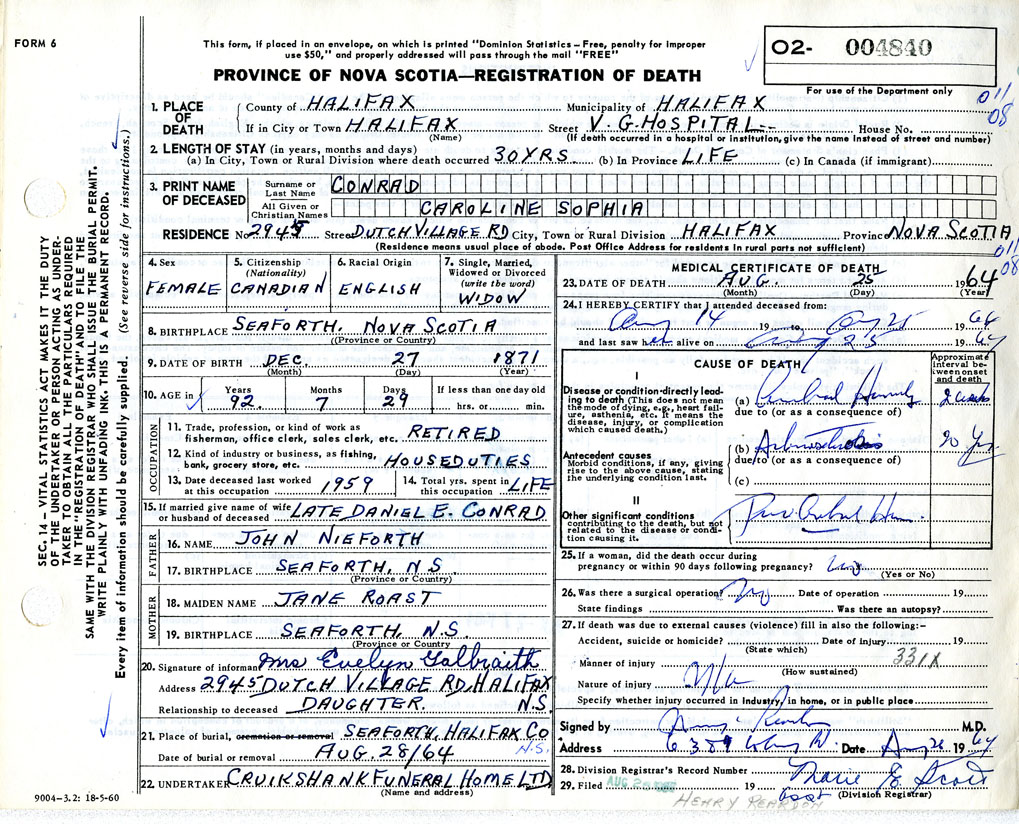 FORM 6
This form, if placed in an envelope, on which is printed "Dominion Statistics – Free, penalty for improper
use $50," and properly addressed will pass through the mail "FREE"
O2- 004840
For use of the Department only
PROVINCE OF NOVA SCOTIA—REGISTRATION OF DEATH
011
08
1. PLACE OF DEATH
County of HALIFAX Municipality of HALIFAX
If in City or Town HALIFAX Street V. G. HOSPITAL House No.
(Name) (If death occurred in a hospital or institution, give the name instead of street and number)
2. LENGTH OF STAY (in years, months and days)
(a) In City, Town or Rural Division where death occurred 30 YRS (b) In Province LIFE (c) In Canada (if immigrant)
3. PRINT NAME OF DECEASED
Surname or Last Name CONRAD
All Given or Christian Names CAROLINE SOPHIA
RESIDENCE No 2945 Street DUTCH VILLAGE RD City, Town or Rural Division HALIFAX Province NOVA SCOTIA
(Residence means usual place of abode. Post Office Address for residents in rural parts not sufficient)
011
08
4. Sex FEMALE
5. Citizenship (Nationality) CANADIAN
6. Racial Origin ENGLISH
7. Single, Married, Widowed or Divorced (write the word) WIDOW
8. BIRTHPLACE SEAFORTH, NOVA SCOTIA
(Province or Country)
9. DATE OF BIRTH DEC. 27 1871
(Month) (Day) (Year)
10. AGE in Years 92. Months 7 Days 29 If less than one day old
hrs. or min.
OCCUPATION
11. Trade, profession, or kind of work as
fisherman, office clerk, sales clerk, etc. RETIRED
12. Kind of industry or business, as fishing,
bank, grocery store, etc. HOUSEDUTIES
13. Date deceased last worked
at this occupation 1959
14. Total yrs. spent in
this occupation LIFE
15. If married give name of wife
or husband of deceased LATE DANIEL E. CONRAD
FATHER
16. NAME JOHN NIEFORTH
17. BIRTHPLACE SEAFORTH, N S
(Province or Country)
MOTHER
18. MAIDEN NAME JANE ROAST
19. BIRTHPLACE SEAFORTH, N.S.
(Province or Country
20. Signature of informant Mrs Evelyn Galbraith
Address 2945 DUTCH VILLAGE RD, HALIFAX
Relationship to deceased DAUGHTER. N.S.
21. Place of burial, cremation or removal SEAFORTH, HALIFAX CO
N.S.
Date of burial or removal AUG. 28/64
22. UNDERTAKER CRUIKSHANK FUNERAL HOME LTD
(Name and address)
MEDICAL CERTIFICATE OF DEATH
23. DATE OF DEATH AUG. 25 1964
(Month) (Day) (Year)
24. I HEREBY CERTIFY that I attended deceased from:
Aug 14 19 to Aug 25 19 64
and last saw her alive on Aug 25 19 64
CAUSE OF DEATH
Approximate interval between onset and death
I
Disease or condition directly leading to death (This does not mean
the mode of dying, e.g., heart failure, asthenia, etc. It means the
disease, injury, or complication
which caused death.)
(a) Cerebral 2 weeks
due to (or as a consequence of)
Antecedent causes
Morbid conditions, if any, giving
rise to the above cause, stating
the underlying condition last.
(b) 20 Yrs
due to (or as a consequence of)
(c)
II
Other significant conditions
contributing to the death, but not
related to the disease or condition causing it.
Cerebral
25. If a woman, did the death occur during
pregnancy or within 90 days following pregnancy? no
(Yes or No)
26. Was there a surgical operation? no Date of operation 19
State findings Was there an autopsy?
27. If death was due to external causes (violence) fill in also the following:–
Accident, suicide or homicide? Date of injury 19
(State which)
331X
Manner of injury
(How sustained)
Nature of injury N/a
Specify whether injury occurred in Industry, in home, or in public place
Signed by M.D.
Address Date Aug 26 19 64
28. Division Registrar's Record Number
29. Filed AUG 19 Marie E Scott
asst (Division Registrar)
HENRY REARDON
9004-3.2: 18-5-60
SEC. 14—VITAL STATISTICS ACT MAKES IT THE DUTY
OF THE UNDERTAKER OR PERSON ACTING AS UNDER-
TAKER TO OBTAIN ALL THE PARTICULARS REQUIRED
IN THE "REGISTRATION OF DEATH" AND TO FILE THE
SAME WITH THE DIVISION REGISTRAR WHO SHALL ISSUE THE BURIAL PERMIT.
WRITE PLAINLY WITH UNFADING INK. THIS IS A PERMANENT RECORD.
Every item of information should be carefully supplied. (See reverse side for instructions.)